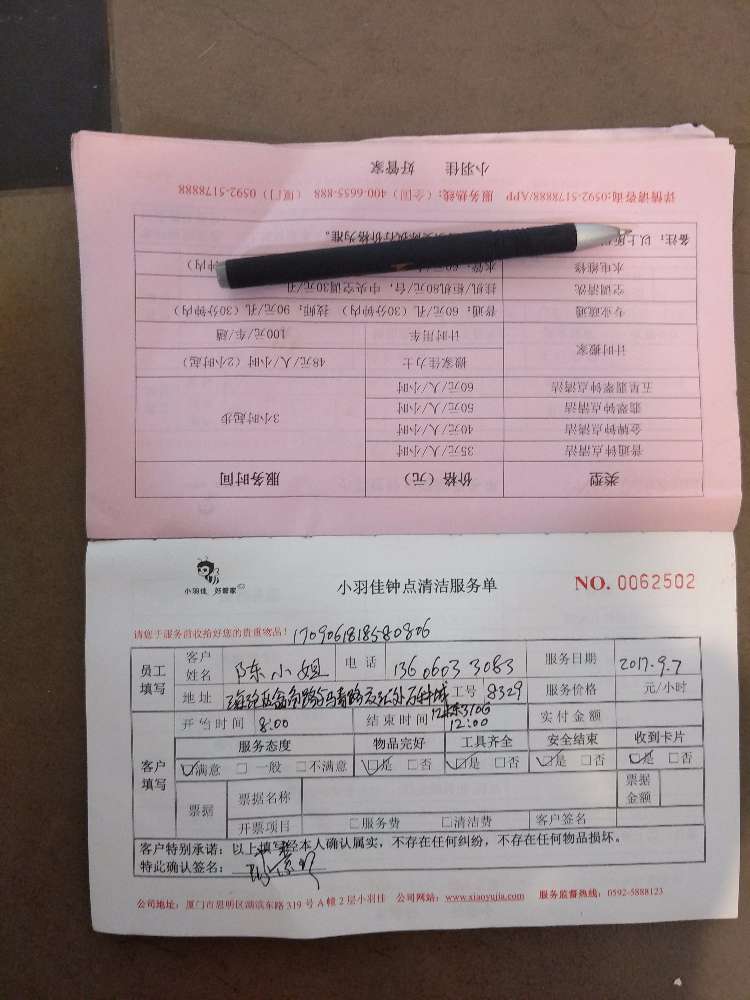 小羽佳 好管家
详情请咨询:0592-5178888/APP 服务热线:(全国) 400-6655-888 (厦门) 0592-5178888
类型 价格(元) 服务时间
普通钟点清洁 35元/人/小时 3小时起步
金牌钟点清洁 40元/人/小时
翡翠钟点清洁 50元/人/小时
五星翡翠钟点清洁 60元/人/小时
计时搬家 搬家佳力士 48元/人/小时(2小时起)
计时用车 100元/车/趟
专业疏通 普通:60元/孔(30分钟内) 技师:90元/孔(30分钟内)
空调清洗 挂机/柜机80元/台,中央空调30元/孔
水电维修
备注:以上 执行价格为准。
小羽佳 好管家
小羽佳钟点清洁服务单
NO. 0062502
请您于服务前收拾好您的贵重物品!
170906181858080​6
员工填写 客户姓名 陈小姐 电话 13606033083 服务日期 2017.9.7
地址 工号 8329 服务价格 元/小时
客户填写 开始时间 8:00 结束时间 12:00 实付金额
服务态度 物品完好 工具齐全 安全结束 收到卡片
☑满意 □一般 □不满意 ☑是 □否 ☑是 □否 ☑是 □否 ☑是 □否
票据 票据名称 票据金额
开票项目 □服务费 □清洁费 客户签名
客户特别承诺:以上填写经本人确认属实,不存在任何纠纷,不存在任何物品损坏。
特此确认签名:
公司地址:厦门市思明区湖滨东路319号A幢2层小羽佳 公司网站:www.xiaoyujia.com 服务监督热线:0592-5888123